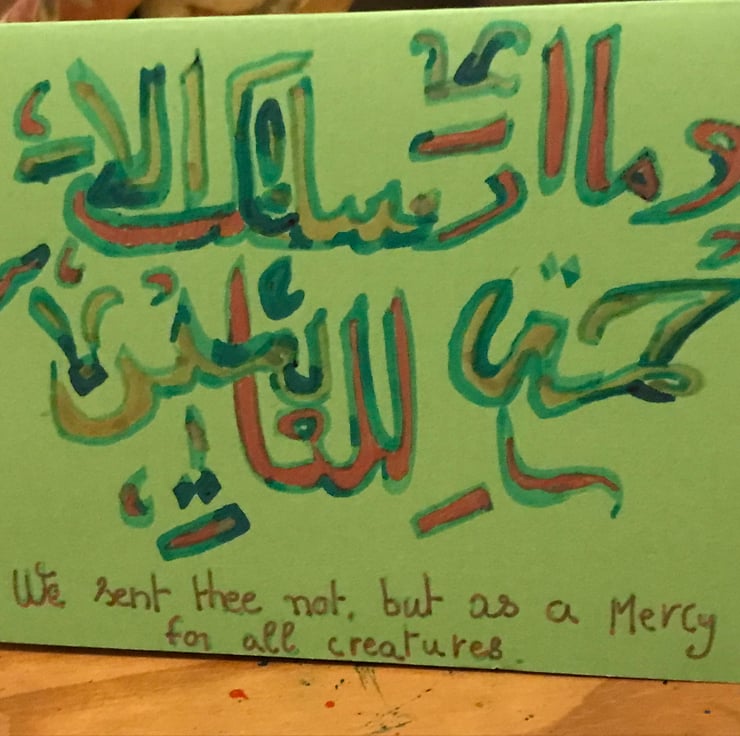 وما أرسلنك إلا
رحمة للعلمين
We sent thee not, but as a Mercy
for all creatures.